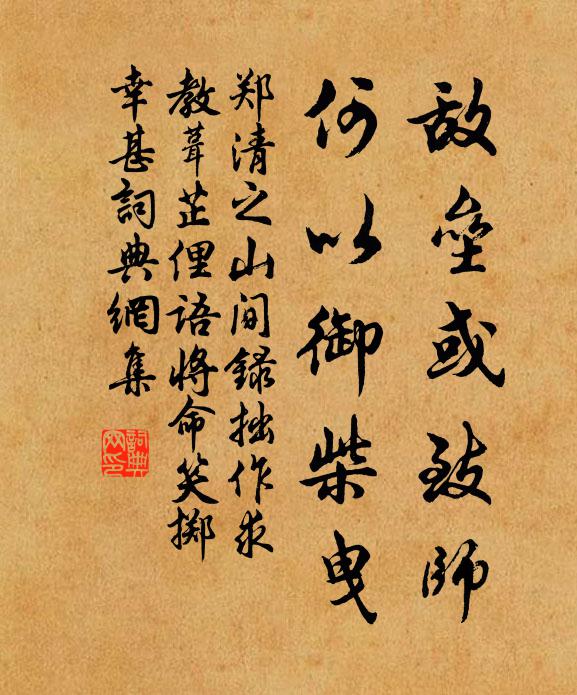 敌垒或致师
何以御柴曳
郑清之山间录拙作求
教葺芷俚语将命笑掷
幸甚词典網集